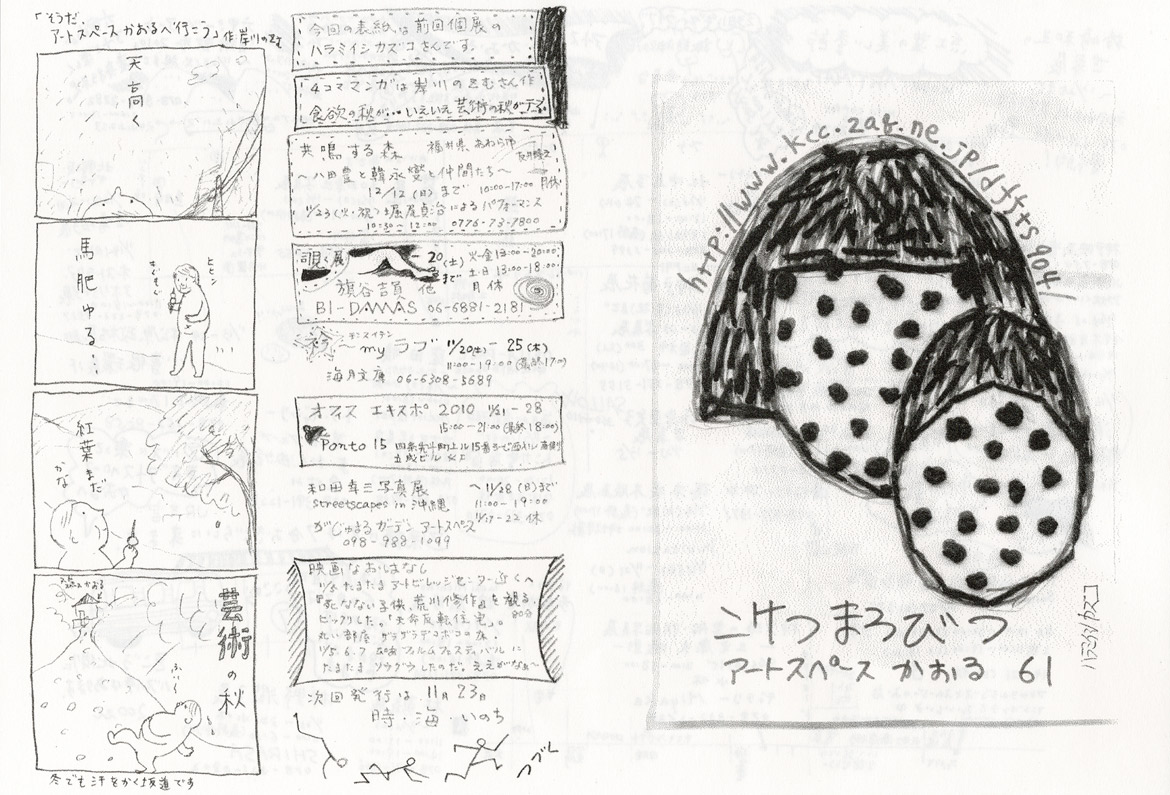 「そうだ、
アートスペースかおるへ行こう」作 岸川のぞむ
天高く
馬肥ゆる…
とことこ
もぐもぐ
紅葉まだ
かな
芸術の秋
ふぅ〜
冬でも汗をかく坂道です
今回の表紙は前回個展の
ハラミイシカズコさんです。
4コママンガは岸川のぞむさん作
食欲の秋が…いえいえ芸術の秋がテーマ
共鳴する森 福井県 あわら市
〜八田豊と韓永燮と仲間たち〜
12/12(日)まで 10:00-17:00 月休
11/23(火・祝)堀尾貞治によるパフォーマンス
10:30〜12:00 0776-73-7800
覗く展 -20(土)まで 火-金13:00-20:00
土日13:00-18:00
旗谷吉員 他 月休
BI-DAMAS 06-6881-2181
my ラブ 11/20(土)-25(木)
11:00-19:00(最終17:00)
海月文庫 06-6308-5689
オフィス エキスポ 2010 11/21-28
15:00-21:00(最終18:00)
Ponto 15
和田幸三写真展 〜11/28(日)まで
streetscapes in 沖縄 11:00-19:00
11/17-22休
がじゅまるガーデン アートスペース
098-988-1099
映画なおはなし
11/6 たまたまアートビレッジセンター近くへ
『死なない子供、荒川修作』を観る。
80分
ビックリした。「天命反転住宅」。
丸い部屋、グラグラデコボコの床!
11/5.6.7 映画フィルムフェスティバルに
たまたまソウグウしたのだ。ええがなぁ〜
次回発行は、11月23日
時・海・いのち
つづく
http://www.kcc.zaq.ne.jp/dffts904/
こけつまろびつ
アートスペース かおる 61
ハラミイシカズコ